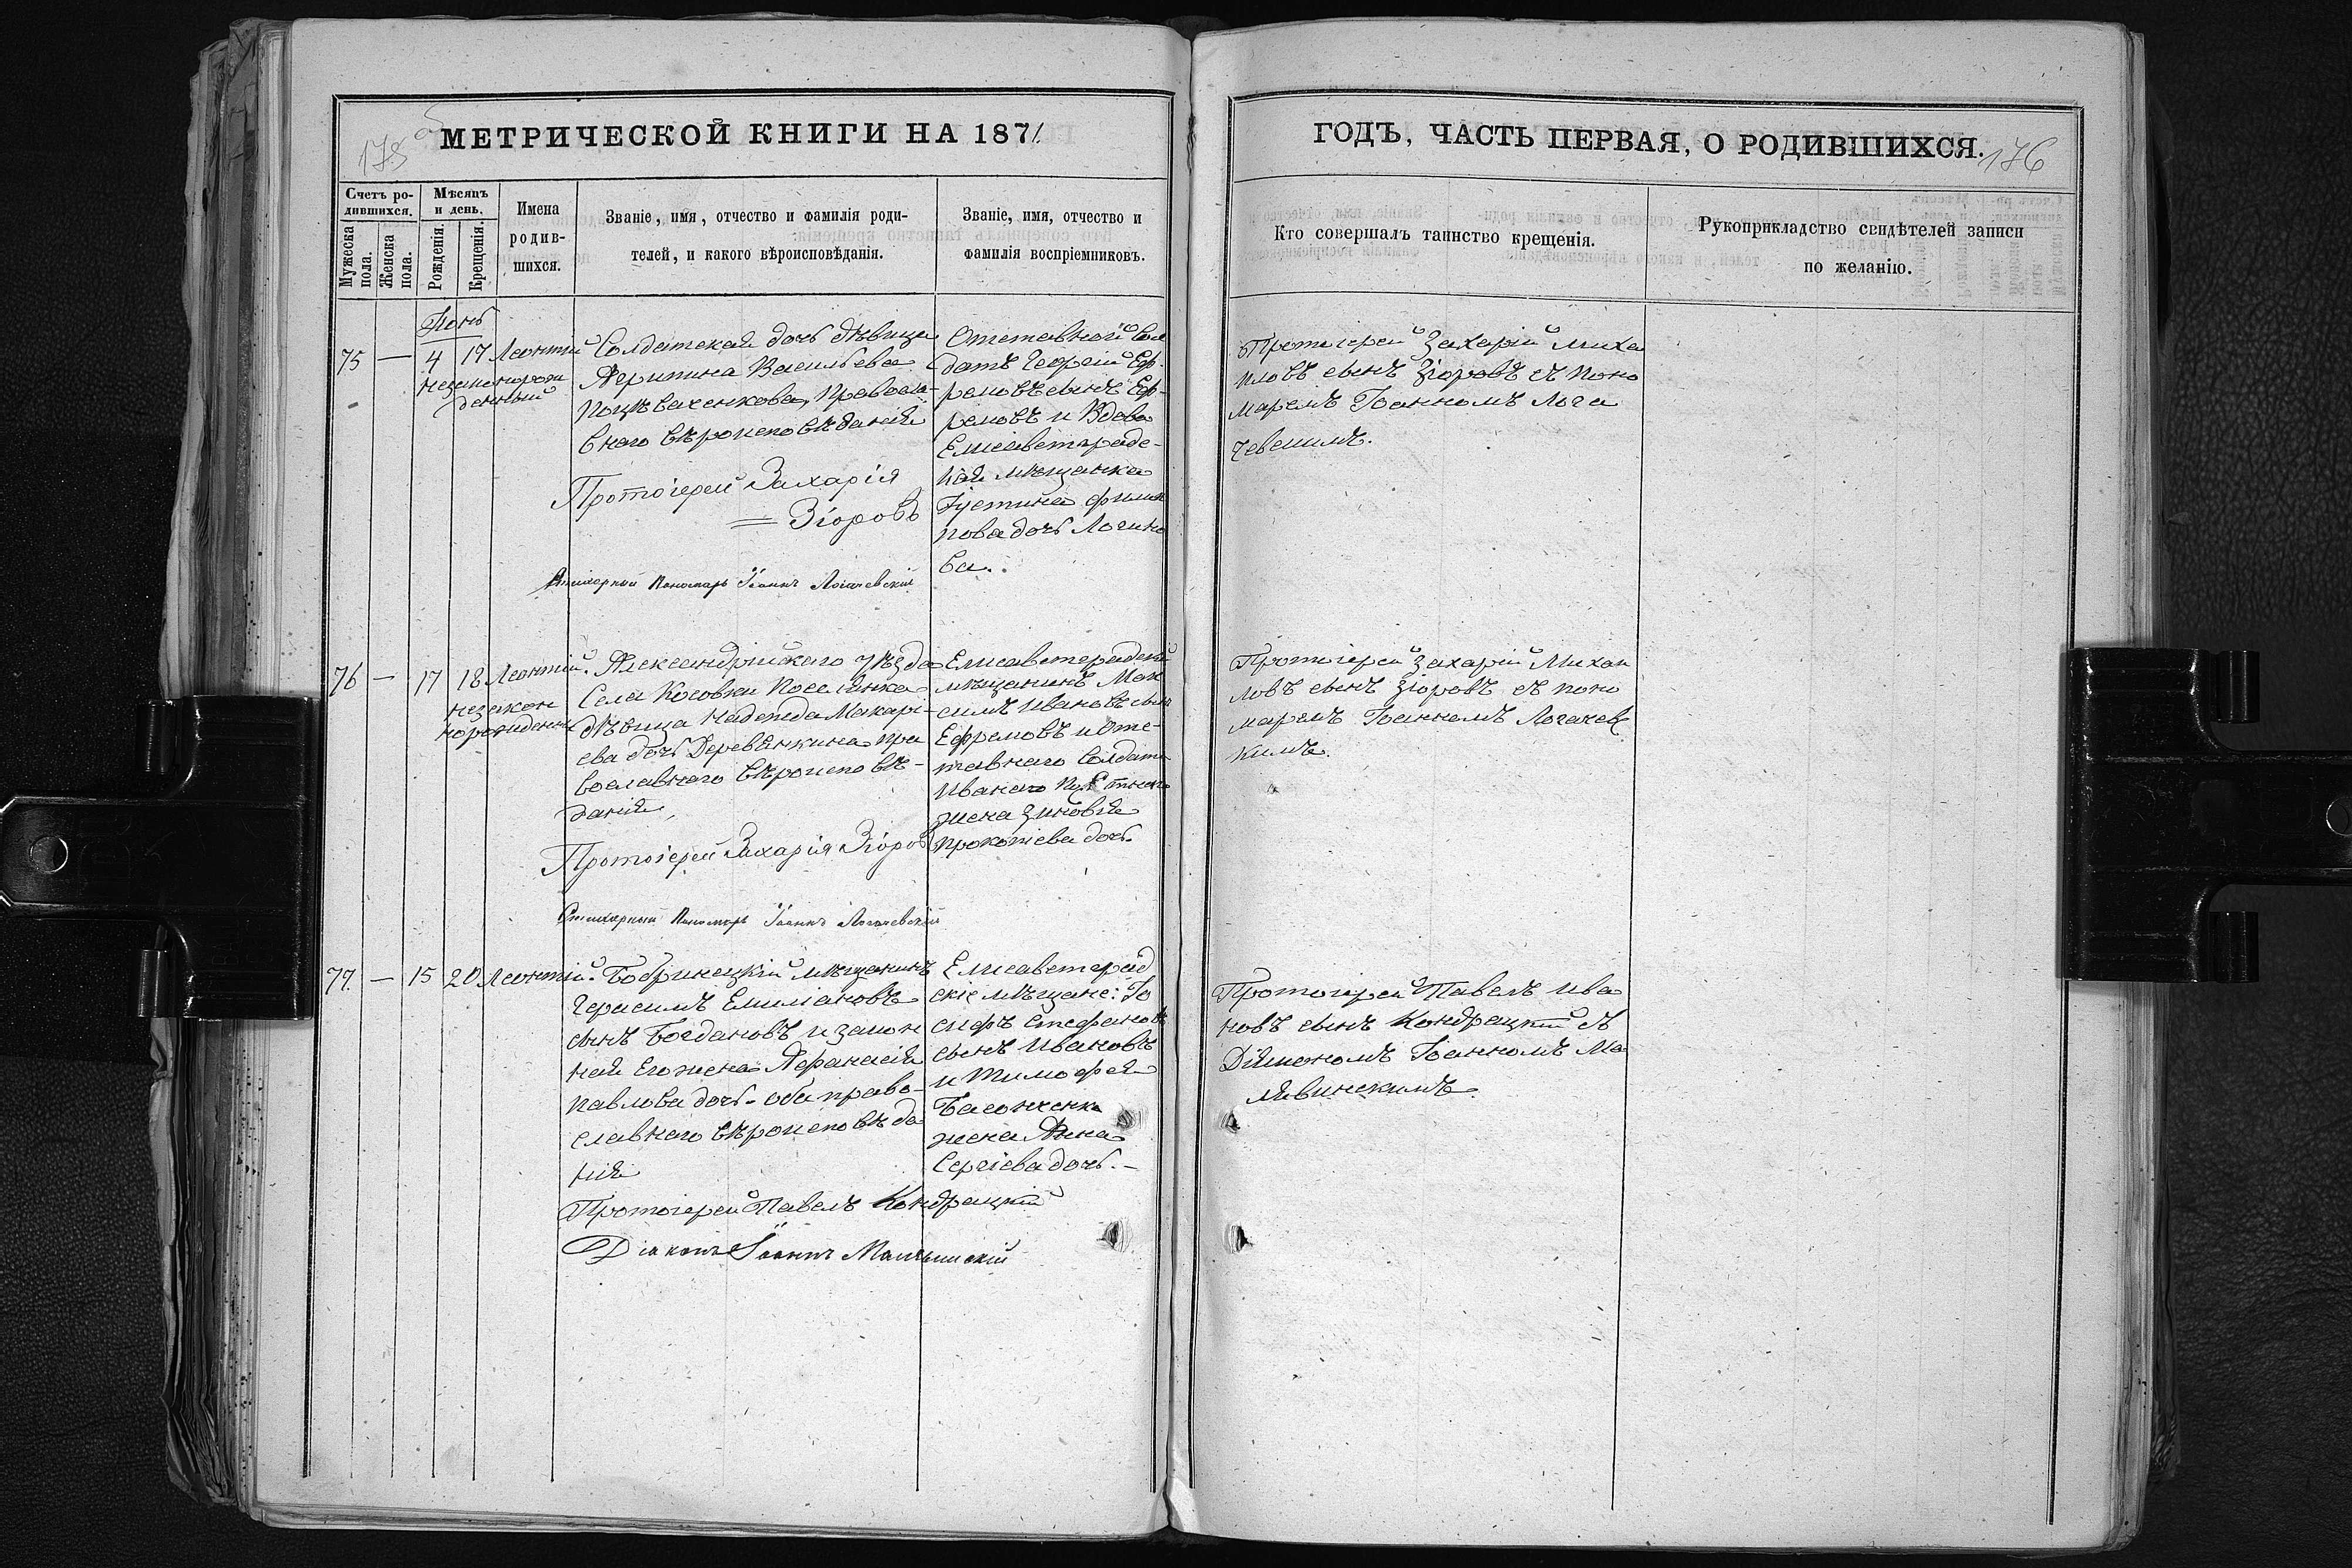 175
МЕТРИЧЕСКОЙ КНИГИ НА 1871.
Счетъ ро-
дившихся.
Мужеска
пола.
Женска
пола.
Мѣсяцъ
и день.
Рожденія.
Крещенія.
Имена
родив-
шихся.
Званіе, имя, отчество и фамилія роди-
телей, и какого вѣроисповѣданія.
Званіе, имя, отчество и
фамилія воспріемниковъ.
75 — 4 17 Леонтій
незаконорож
денный
Солдатская дочь дѣвица
Агрипина Васильева
Православ-
внаго вѣроисповѣданія
Протоіерей Захарія
= Зіоровъ
Стихарный Пономарь Іоаннъ Логачевскій
Отставной Сол
датъ Георгій Еф-
ремовъ сынъ Еф-
ремовъ и Вдова
Елисаветградс-
кая мѣщанка
Іустина Филип
пова дочь Логино
ва.
76 — 17 18 Леонтій.
незакон
норожденны
Александрійскаго уѣзда
Села Косовки Поселянка
дѣвица Надежда Макарі-
ева дочь Деревянкина пра
вославнаго вѣроисповѣ-
данія,
Протоіерей Захарія Зіоровъ
Стихарный Пономарь Іоаннъ Логачевскій
Елисаветградскій
мѣщанинъ Мак
симъ Ивановъ сынъ
Ефремовъ и Отс-
тавнаго Солдата
Иванаго
жена Зиновія
Прокопіева дочь.
77. — 15 20 Леонтій.
Бобринецкій мѣщанинъ
Герасимъ Емиліановъ
сынъ Богдановъ и закон
ная его жена Афанасія
Павлова дочь - оба право-
славнаго вѣроисповѣда
нія
Протоіерей Павелъ Кондрацкій
Діаконъ Іоаннъ Малявинскій
Елисаветград
скіе мѣщане: Іо
сифъ Стефановъ
сынъ Ивановъ
и Тимофея
жена Анна
Сергіева дочь. —
ГОДЪ, ЧАСТЬ ПЕРВАЯ, О РОДИВШИХСЯ.
176
Кто совершалъ таинство крещенія.
Рукоприкладство свидѣтелей записи
по желанію.
Протоіерей Захарій Миха
иловъ сынъ Зіоровъ съ Поно
маремъ Іоанномъ Лога
чевскимъ.
Протоіерей Захарій Михаи
ловъ сынъ Зіоровъ съ поно
маремъ Іоанномъ Логачевс
кимъ.
Протоіерей Павелъ Ива
новъ сынъ Кондрацкій съ
Діякономъ Іоанномъ Ма
лявинскимъ.